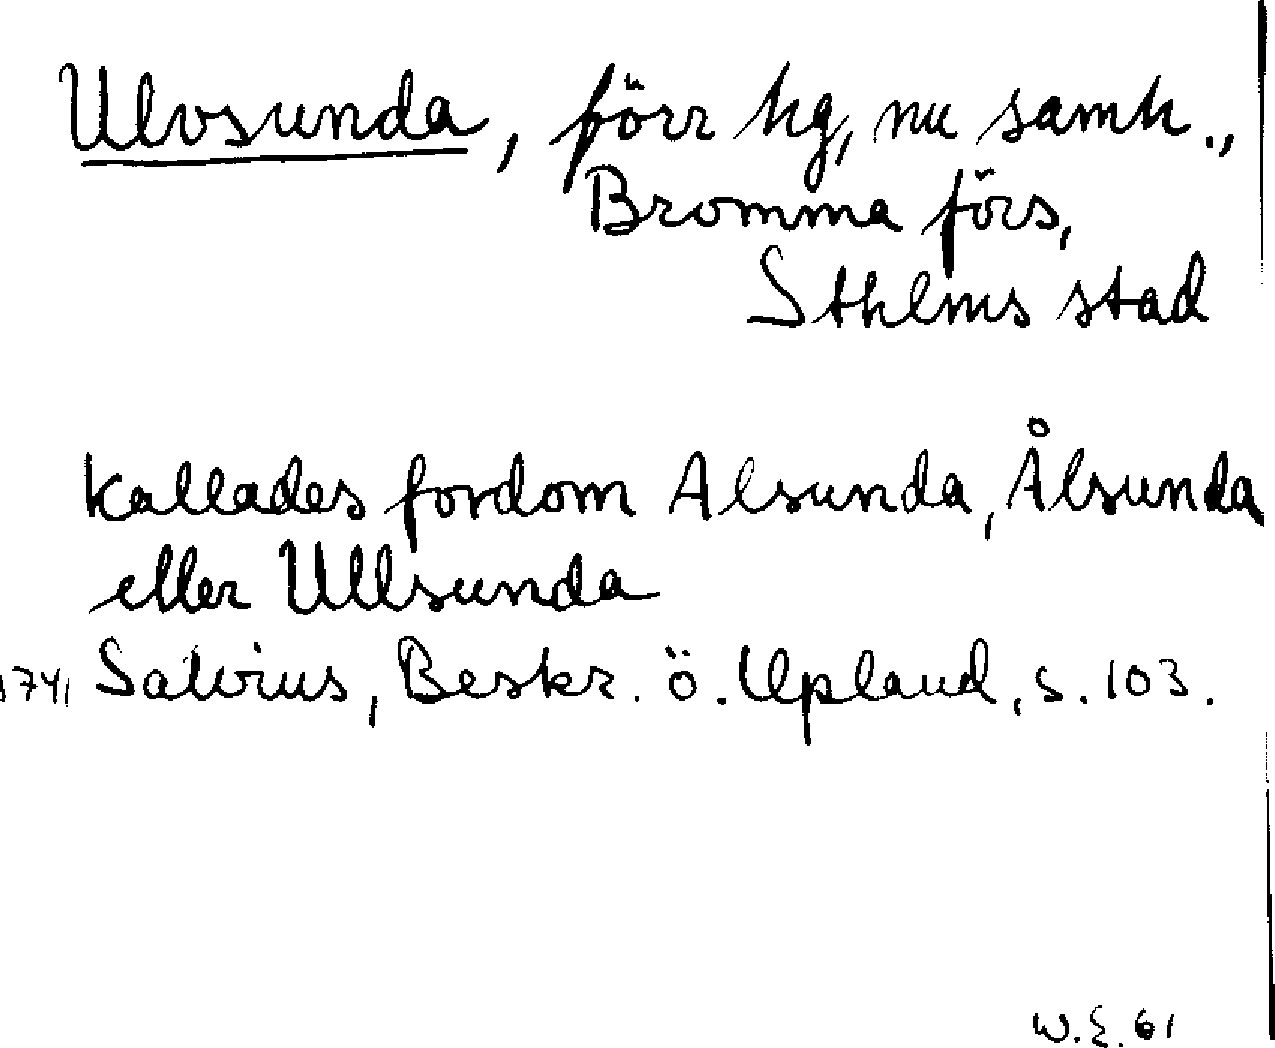 Ulvsunda, förr hg, nu samh.,
Bromma förs,
Sthlms stad
kallades fordom Alsunda, Ålsunda
eller Ullsunda
1741 Salvius, Beskr. ö. Upland, s. 103.
W.E. 61